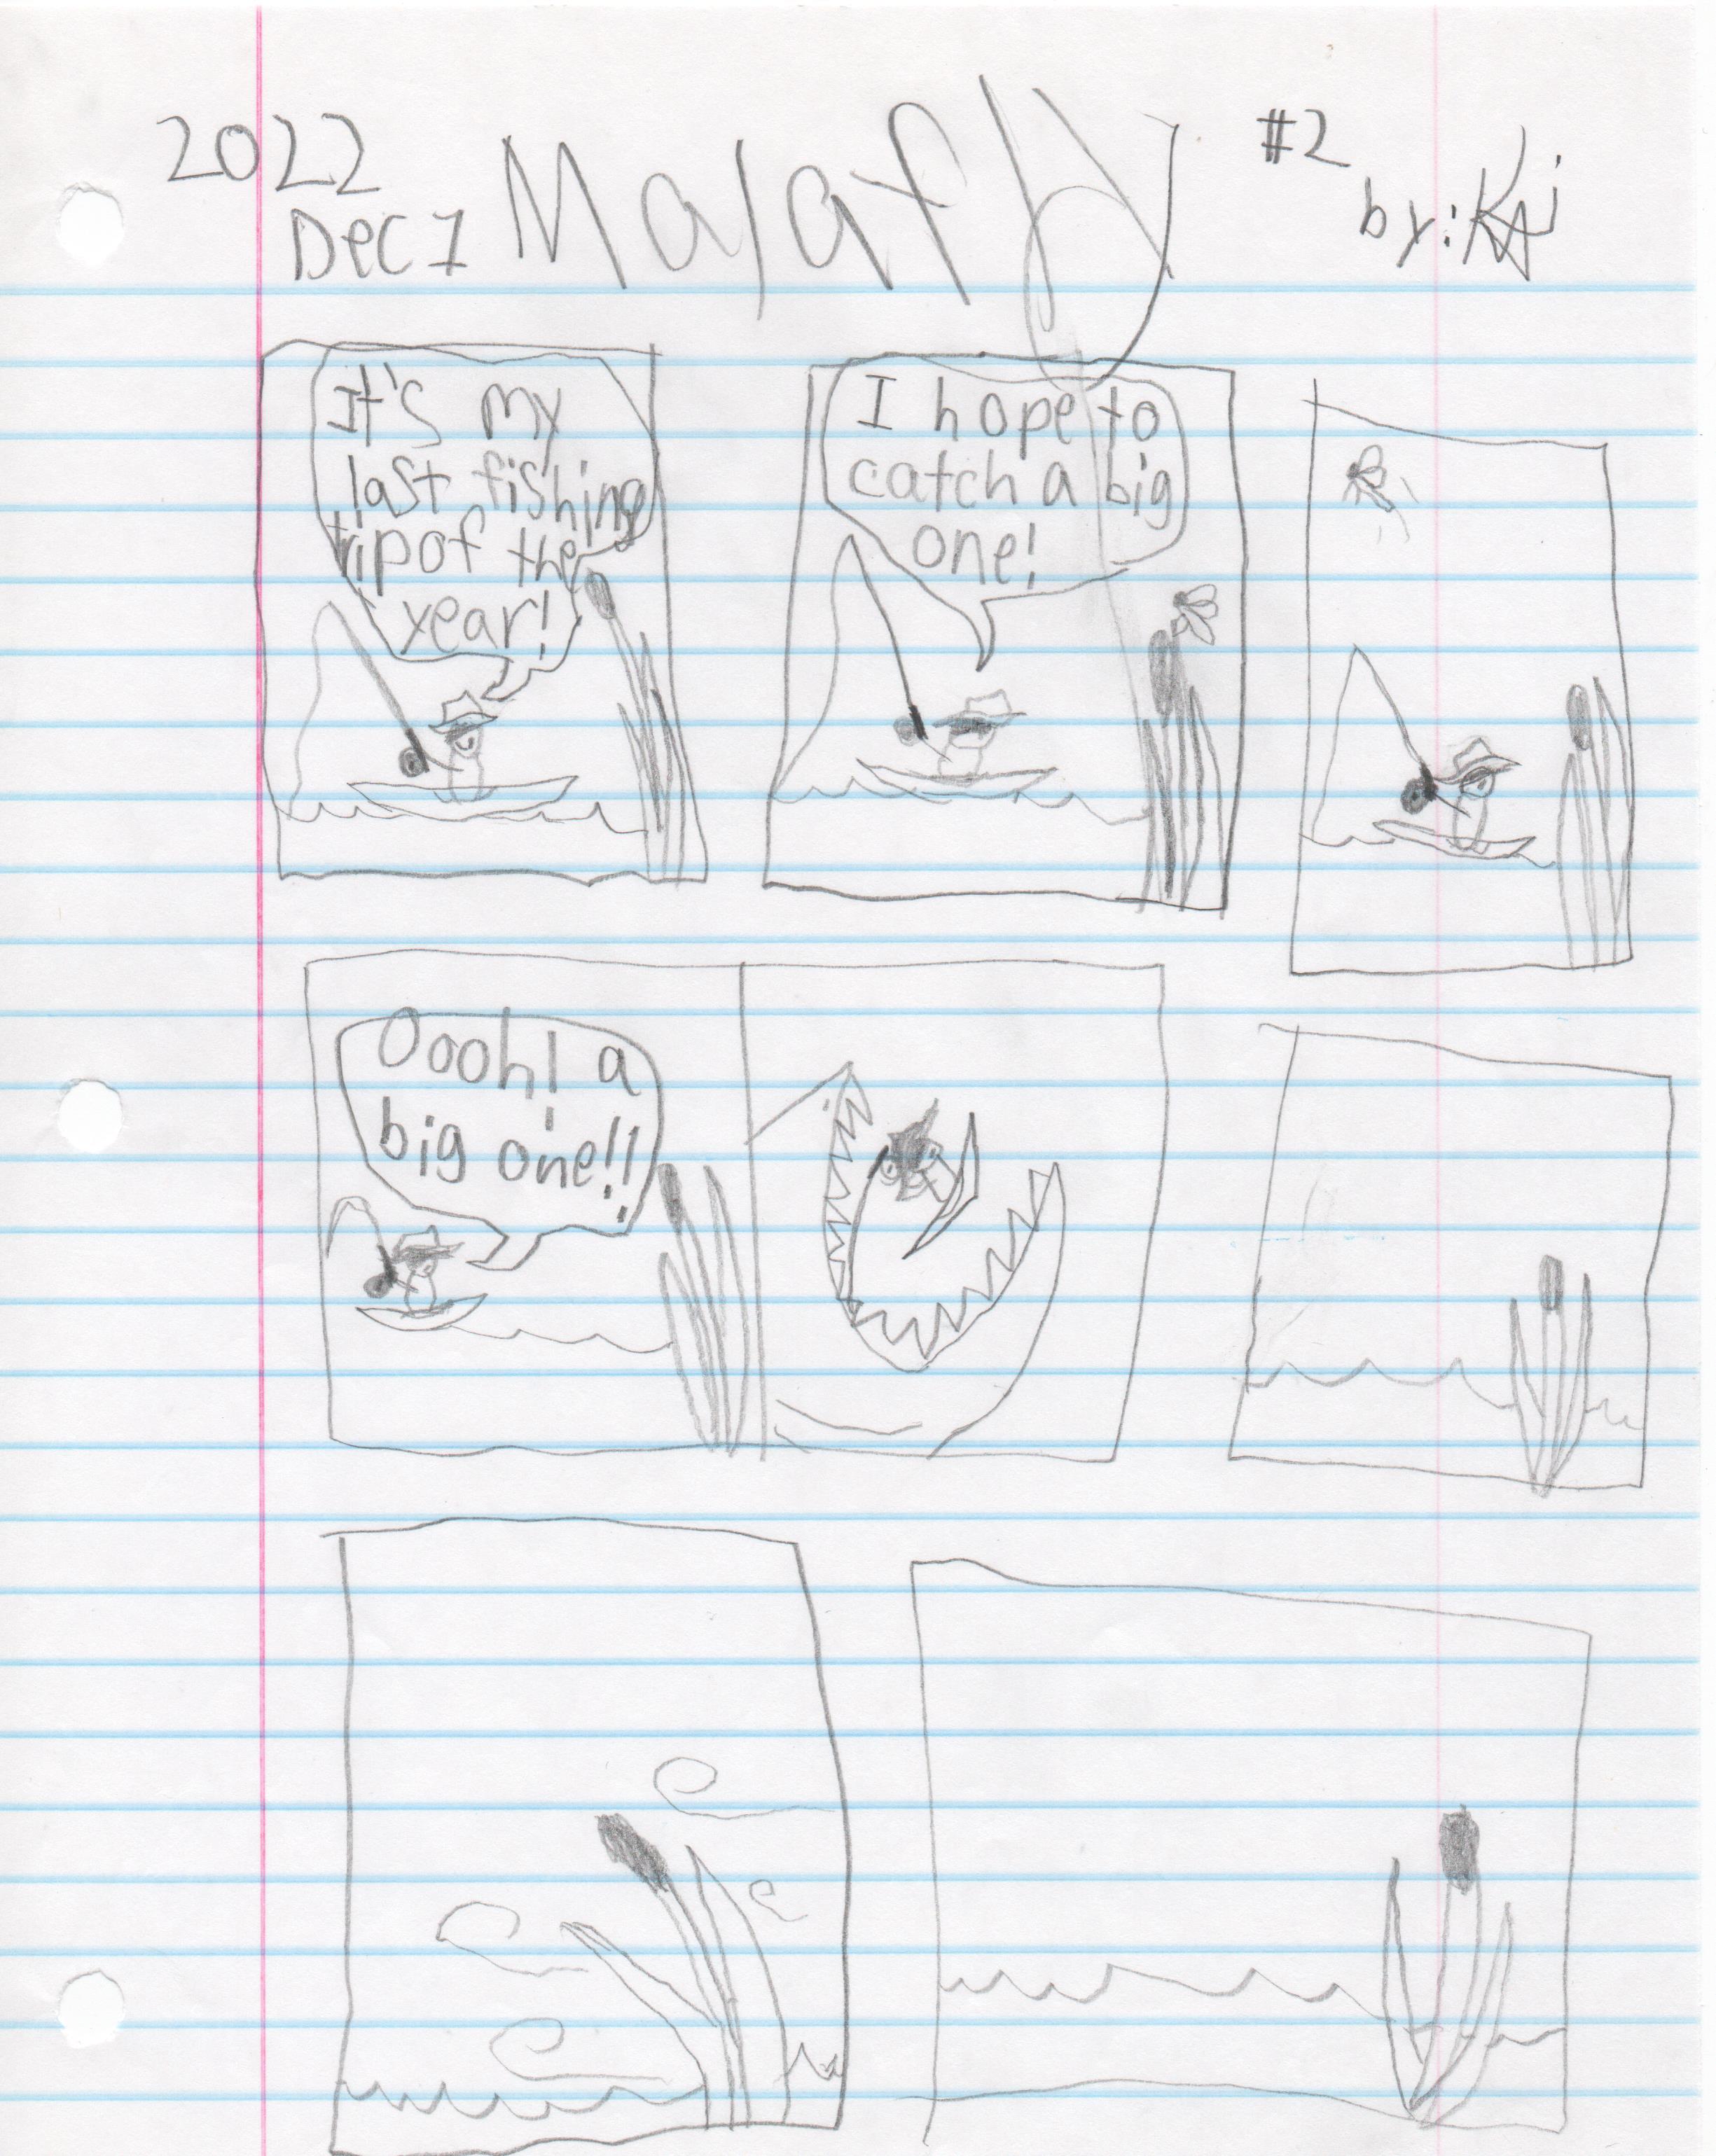 2022
Dec 1
Malaffy
#2
by: Kai
It's my
last fishing
trip of the
year!
I hope to
catch a big
one!
Oooh! a
big one!!